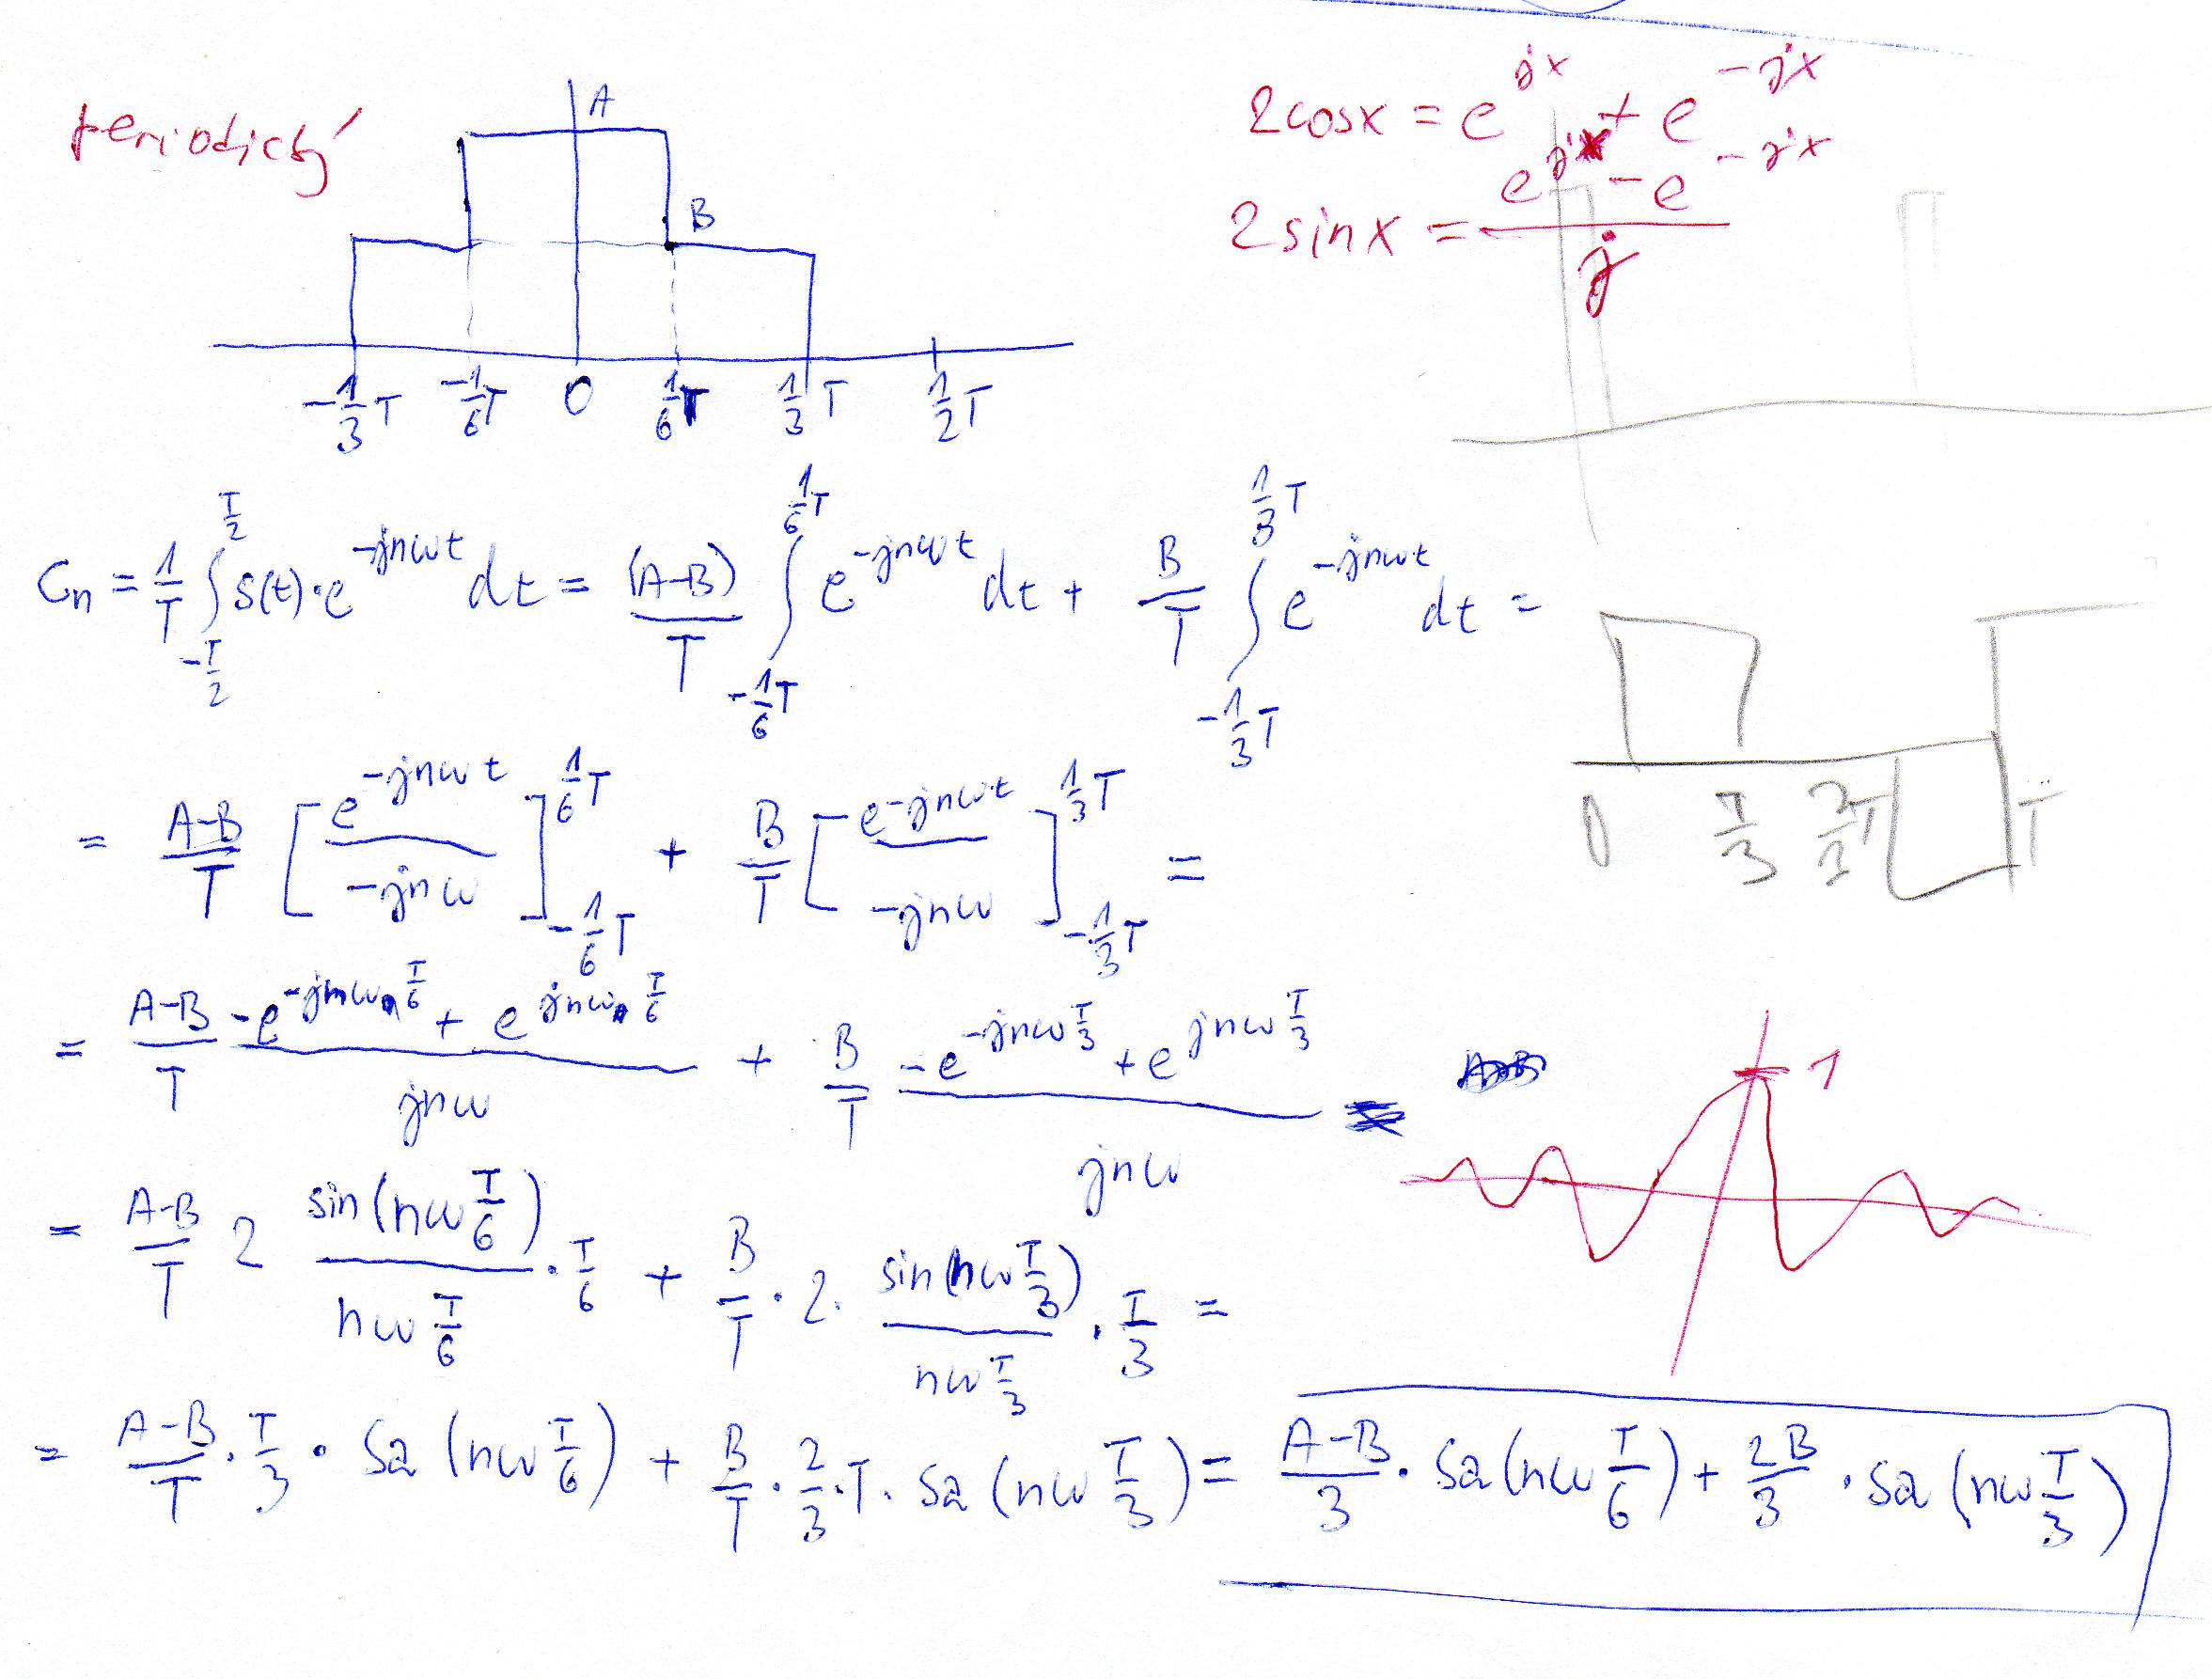 periodický
A
B
-1/3 T  -1/6 T  0  1/6 T  1/3 T  1/2 T
2cosx = e^{jx} + e^{-jx}
2sinx = (e^{jx} - e^{-jx})/j
Cn = 1/T ∫_{-T/2}^{T/2} s(t)·e^{-jnωt} dt = (A-B)/T ∫_{-1/6 T}^{1/6 T} e^{-jnωt} dt + B/T ∫_{-1/3 T}^{1/3 T} e^{-jnωt} dt =
= A-B/T [e^{-jnωt}/-jnω]_{-1/6 T}^{1/6 T} + B/T [e^{-jnωt}/-jnω]_{-1/3 T}^{1/3 T} =
0  T/3  2/3 T  T
= A-B/T (-e^{-jnω T/6} + e^{jnω T/6})/jnω + B/T (-e^{-jnω T/3} + e^{jnω T/3})/jnω =
1
= A-B/T 2 sin(nω T/6)/(nω T/6) · T/6 + B/T · 2 · sin(nω T/3)/(nω T/3) · T/3 =
= A-B/T · T/3 · Sa (nω T/6) + B/T · 2/3 · T · Sa (nω T/3) = A-B/3 · Sa(nω T/6) + 2B/3 · Sa (nω T/3)